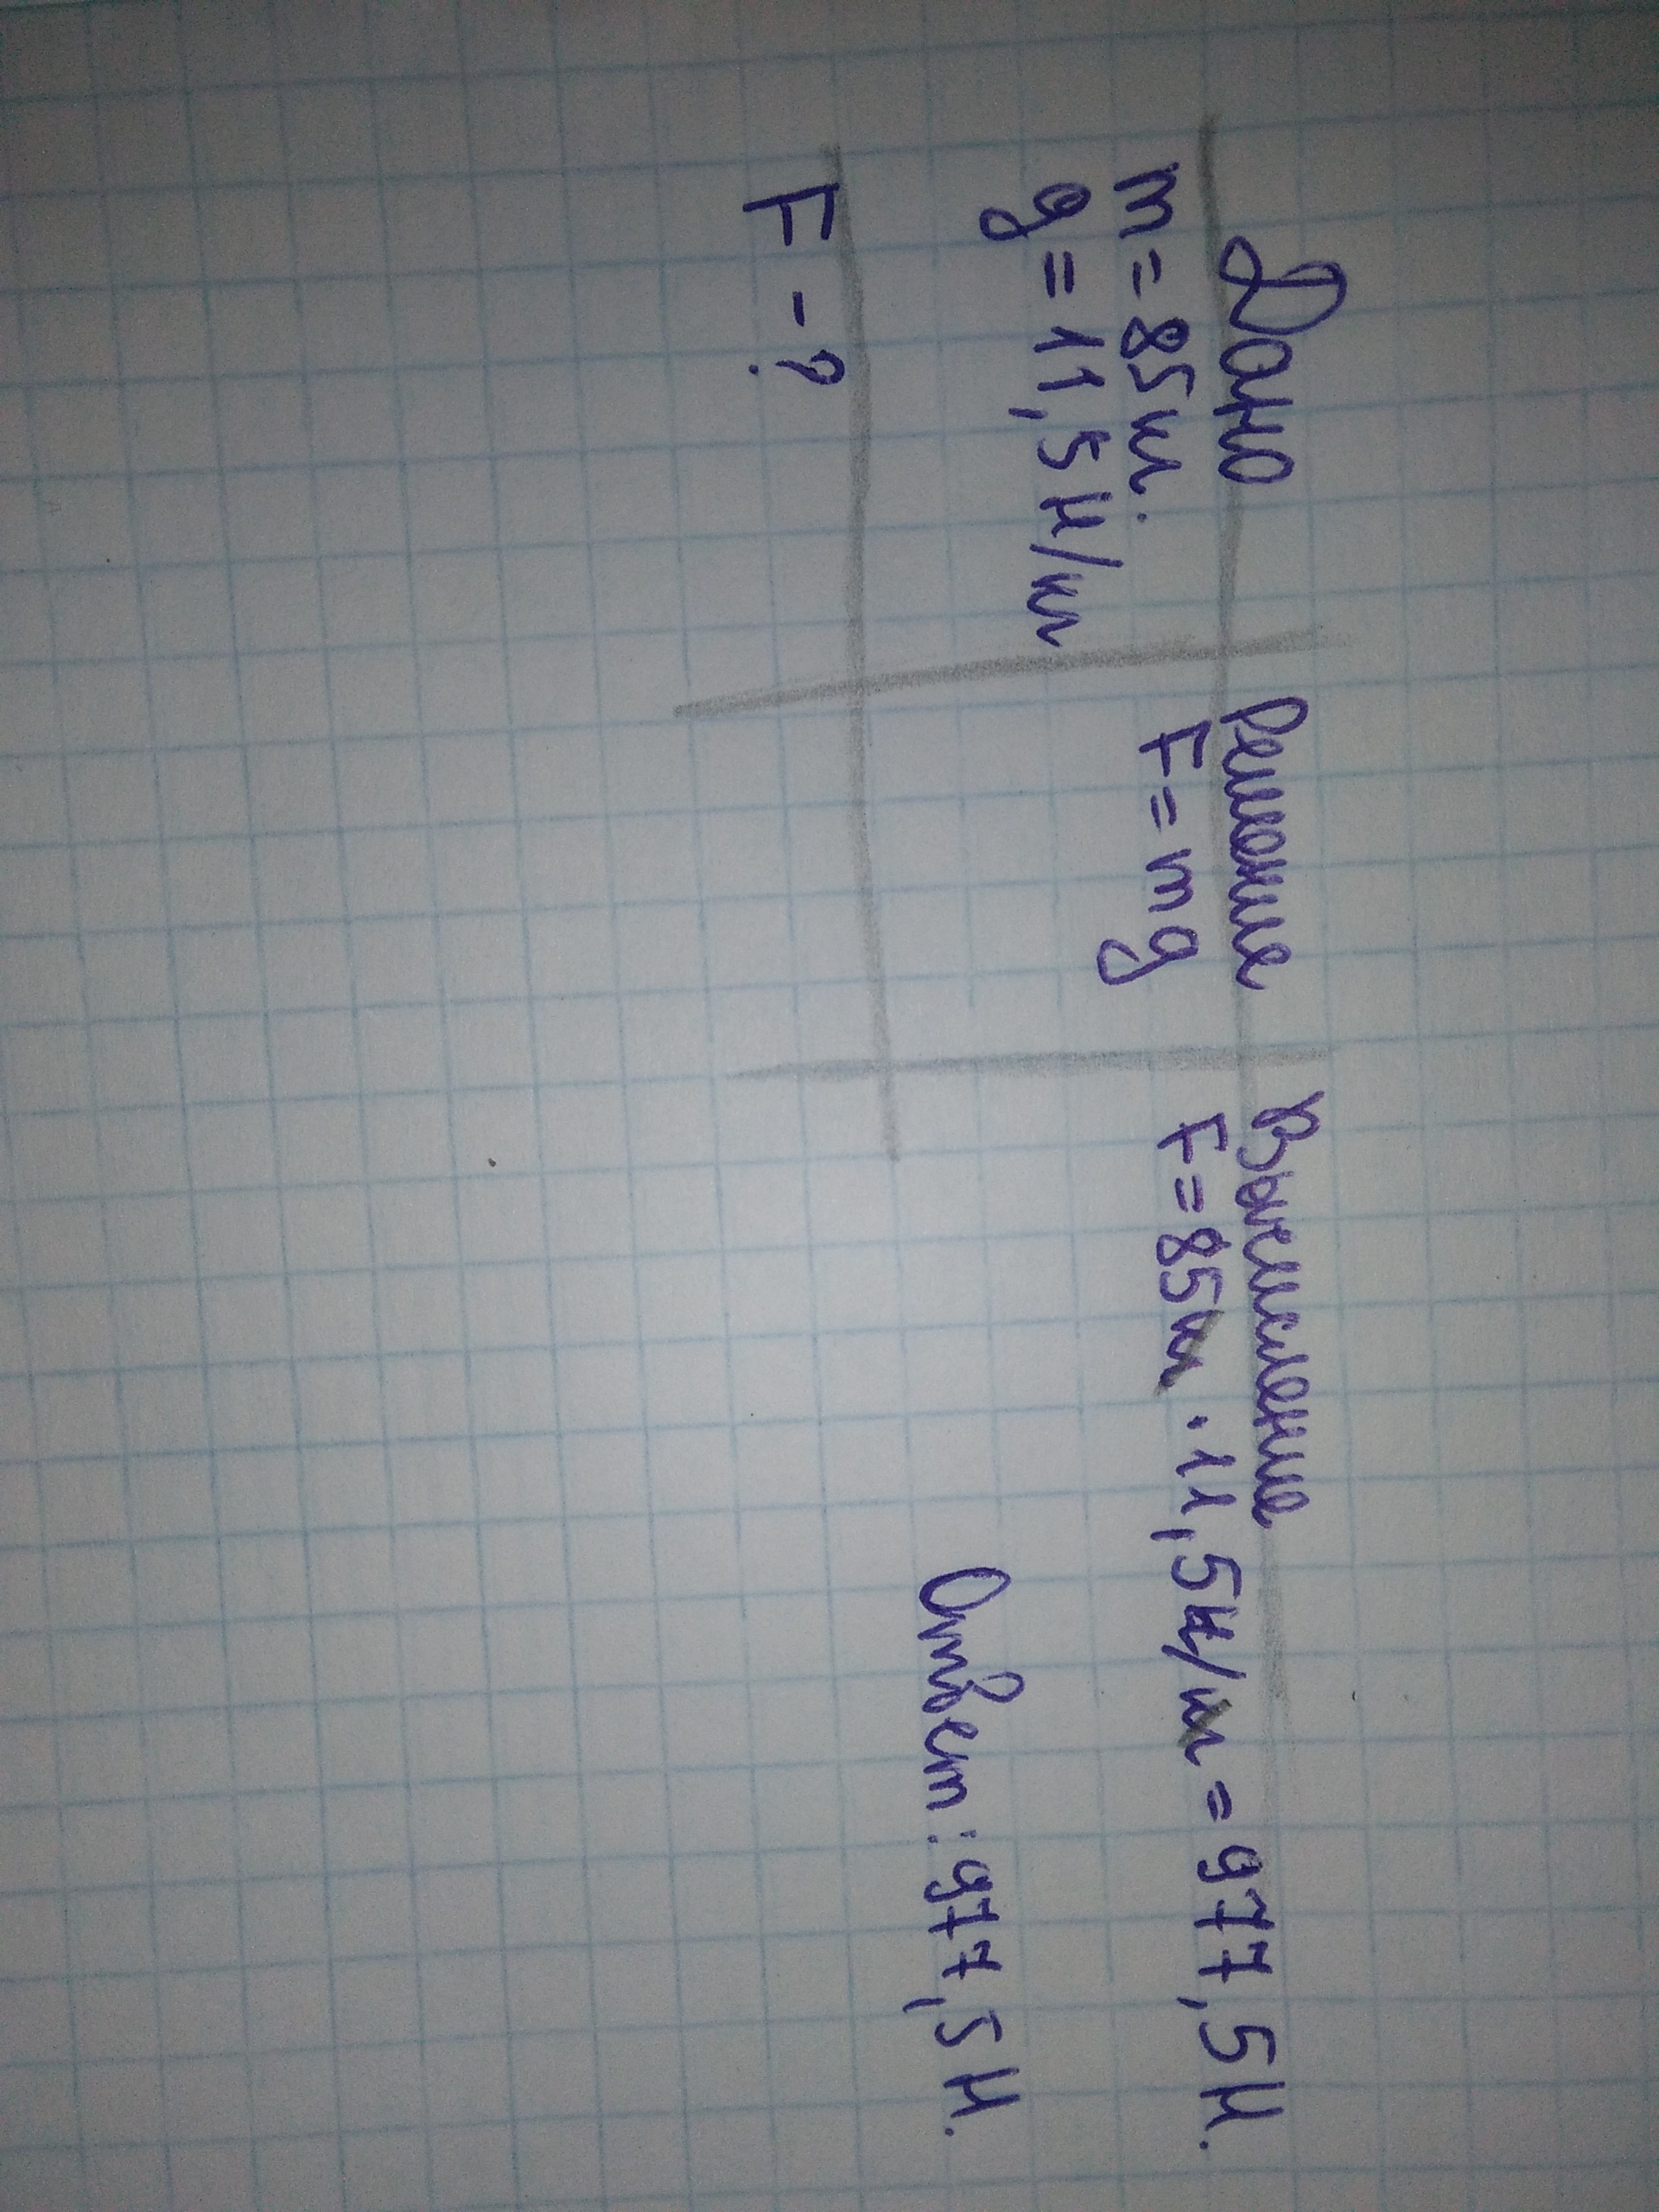 Дано
m = 85кг.
g = 11,5 Н/кг
F - ?
Решение
F = mg
Вычесисление
F = 85кг · 11,5Н/кг = 977,5 Н.
Ответ: 977,5 Н.